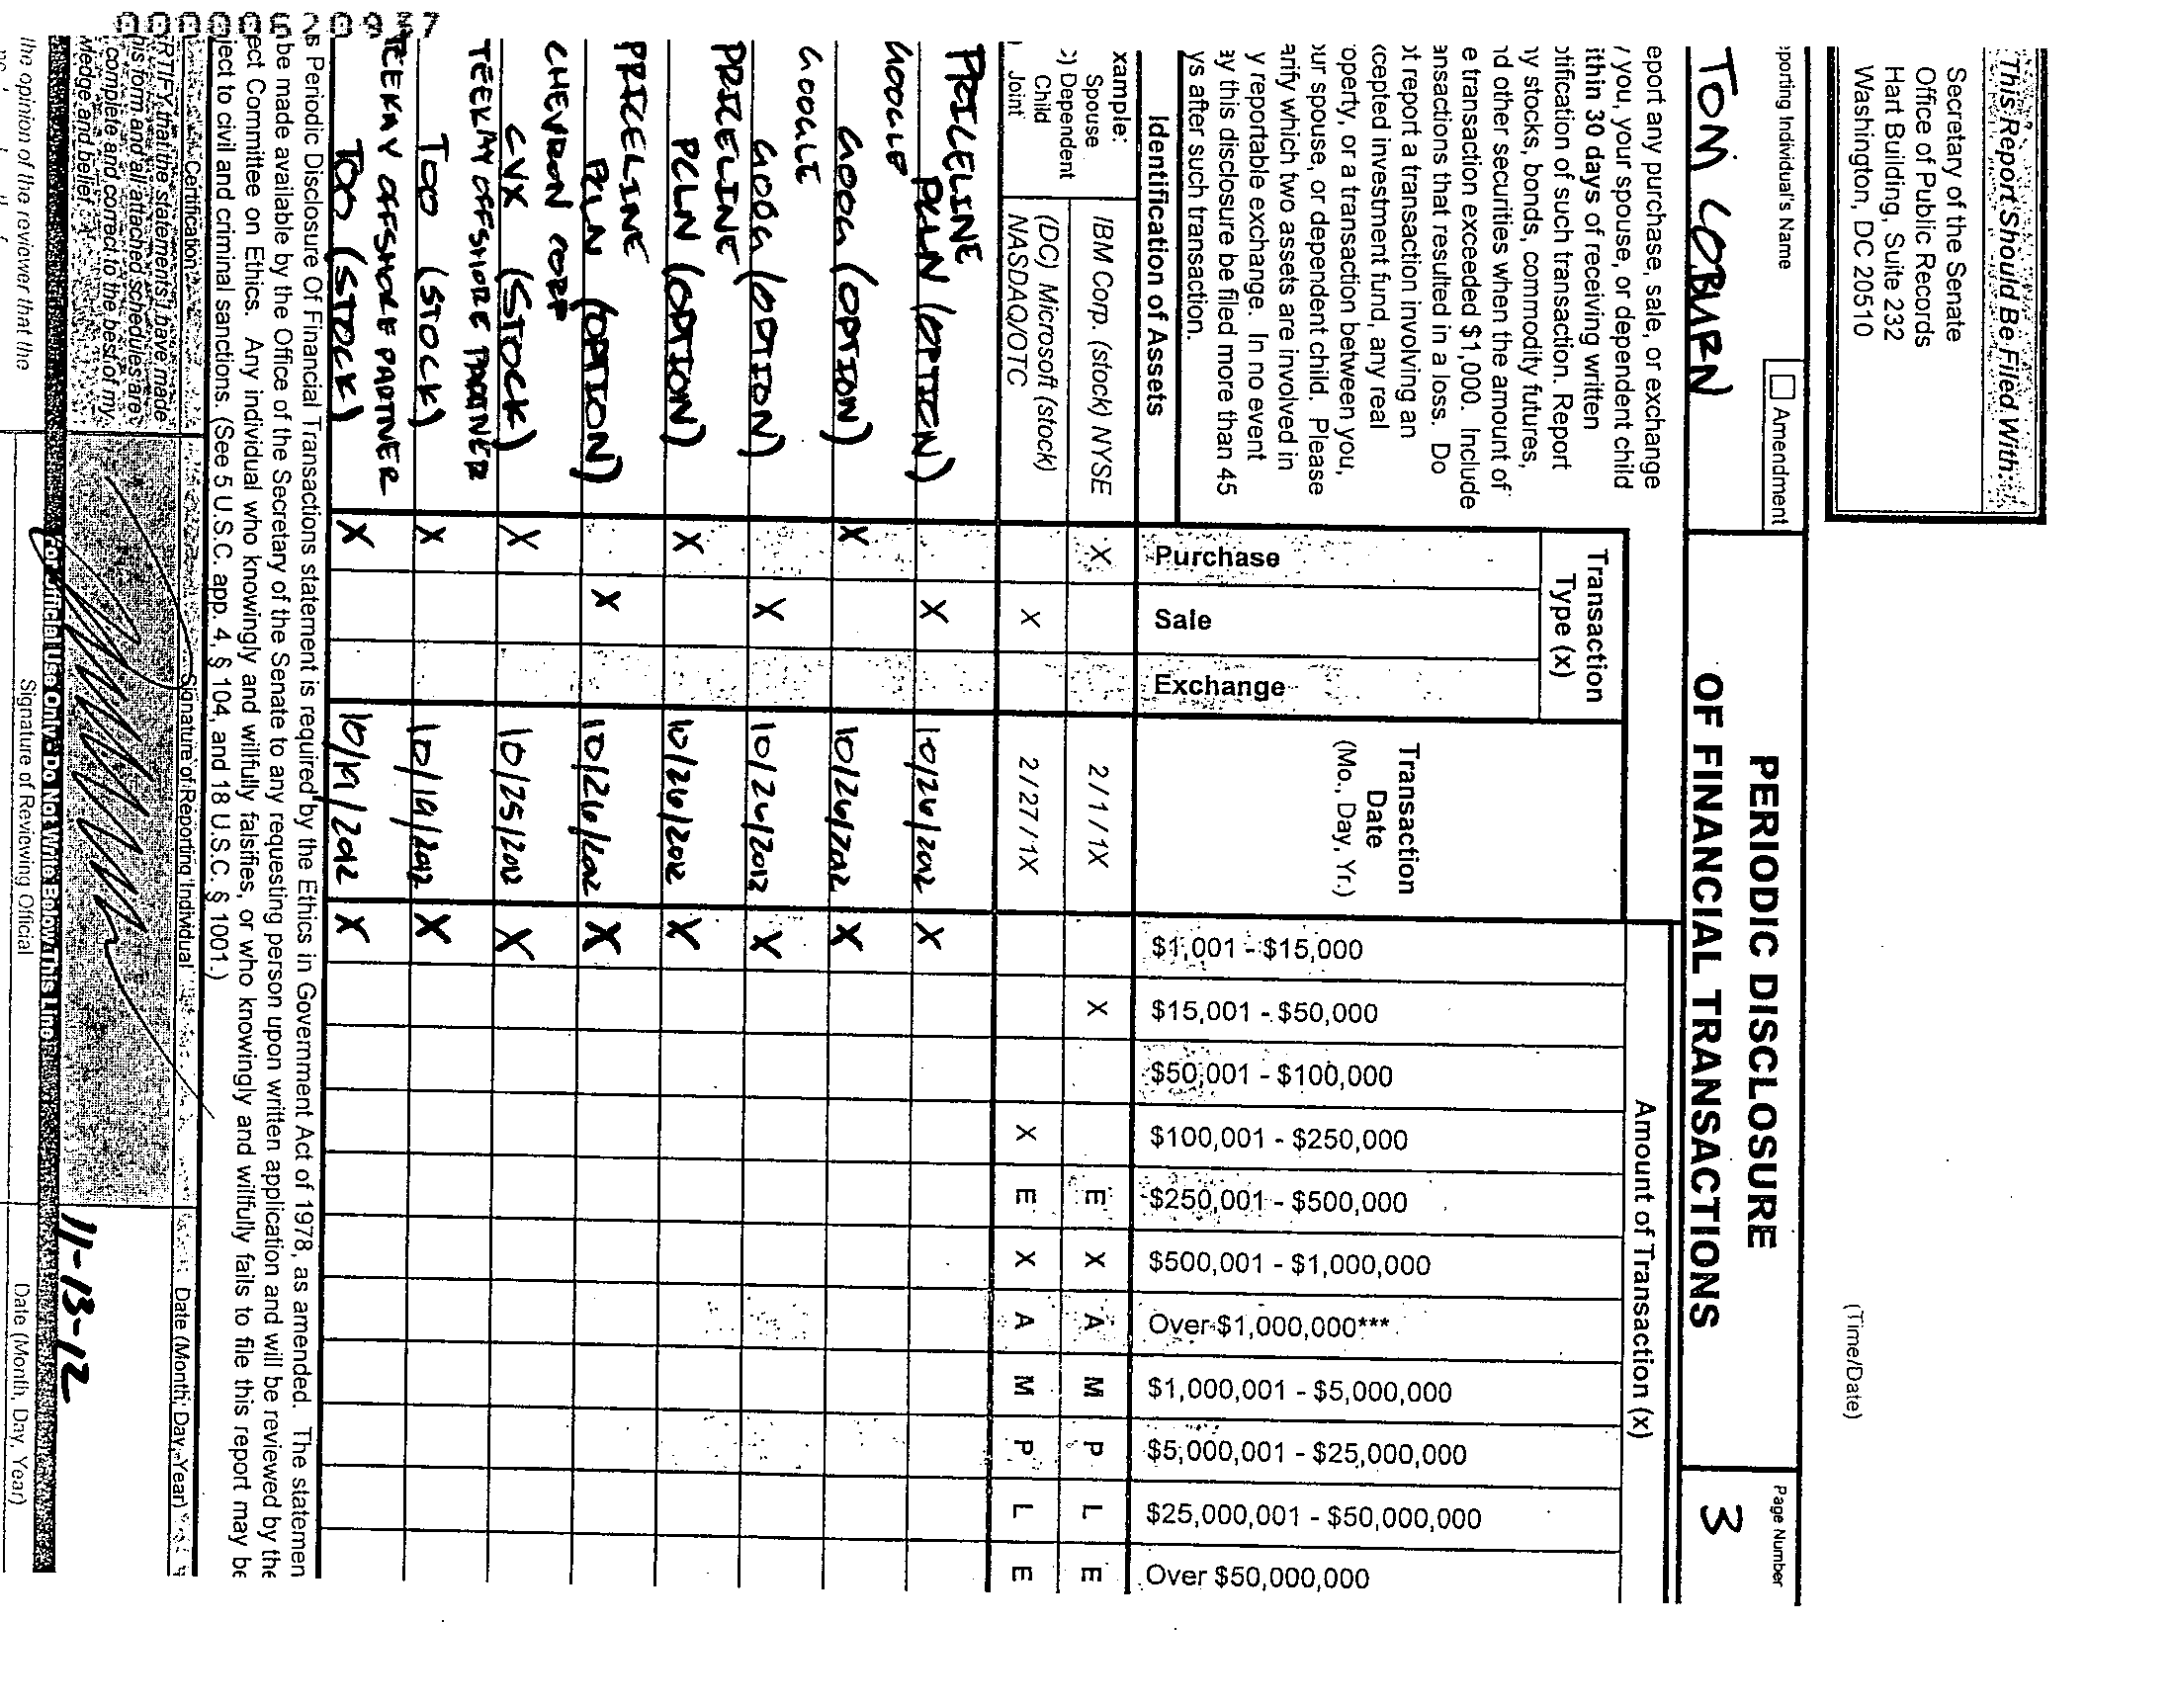 This Report Should Be Filed With:
Secretary of the Senate
Office of Public Records
Hart Building, Suite 232
Washington, DC 20510
(Time/Date)
eporting Individual's Name
Amendment
TOM COBURN
PERIODIC DISCLOSURE
OF FINANCIAL TRANSACTIONS
Page Number
3
eport any purchase, sale, or exchange
y you, your spouse, or dependent child
ithin 30 days of receiving written
otification of such transaction. Report
ny stocks, bonds, commodity futures,
nd other securities when the amount of
e transaction exceeded $1,000. Include
ansactions that resulted in a loss. Do
ot report a transaction involving an
xcepted investment fund, any real
operty, or a transaction between you,
our spouse, or dependent child. Please
arify which two assets are involved in
y reportable exchange. In no event
ay this disclosure be filed more than 45
ys after such transaction.
Identification of Assets
Transaction
Type (x)
Purchase
Sale
Exchange
Transaction
Date
(Mo., Day, Yr.)
Amount of Transaction (x)
$1,001 - $15,000
$15,001 - $50,000
$50,001 - $100,000
$100,001 - $250,000
$250,001 - $500,000
$500,001 - $1,000,000
Over $1,000,000***
$1,000,001 - $5,000,000
$5,000,001 - $25,000,000
$25,000,001 - $50,000,000
Over $50,000,000
xample:
Spouse
) Dependent
Child
Joint
IBM Corp. (stock) NYSE X 2/1/1X X E X A M P L E
(DC) Microsoft (stock)
NASDAQ/OTC X 2/27/1X X E X A M P L E
PRICELINE
PCLN (OPTION) X 10/26/2012 X
GOOGLE
GOOG (OPTION) X 10/26/2012 X
GOOGLE
GOOG (OPTION) X 10/26/2012 X
PRICELINE
PCLN (OPTION) X 10/26/2012 X
PRICELINE
PCLN (OPTION) X 10/26/2012 X
CHEVRON CORP
CVX (STOCK) X 10/25/2012 X
TEEKAY OFFSHORE PARTNER
TOO (STOCK) X 10/19/2012 X
TEEKAY OFFSHORE PARTNER
TOO (STOCK) X 10/19/2012 X
s Periodic Disclosure Of Financial Transactions statement is required by the Ethics in Government Act of 1978, as amended. The statemen
be made available by the Office of the Secretary of the Senate to any requesting person upon written application and will be reviewed by the
ect Committee on Ethics. Any individual who knowingly and willfully falsifies, or who knowingly and willfully fails to file this report may be
ject to civil and criminal sanctions. (See 5 U.S.C. app. 4, § 104, and 18 U.S.C. § 1001.)
Certification
Signature of Reporting Individual
Date (Month, Day, Year)
RTIFY that the statements I have made
his form and all attached schedules are
complete and correct to the best of my
wledge and belief.
11-13-12
For Official Use Only - Do Not Write Below This Line
the opinion of the reviewer that the
Signature of Reviewing Official
Date (Month, Day, Year)